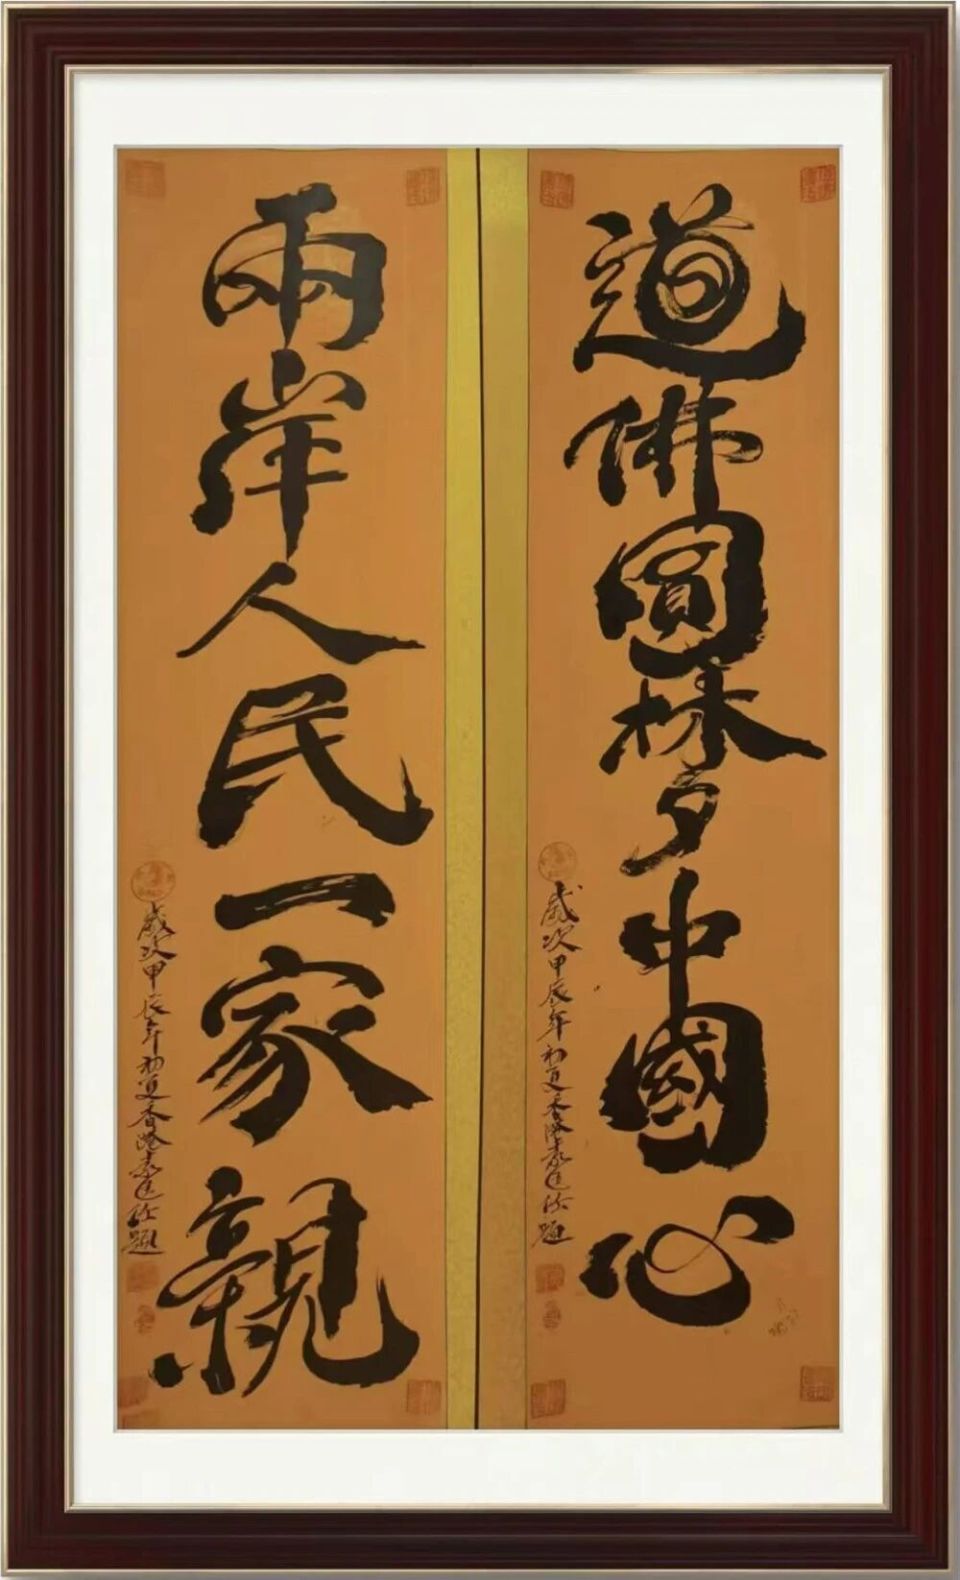 道佛圓梦中國心
歲次甲辰年初夏香港袁 題
兩岸人民一家親
歲次甲辰年初夏香港袁 題